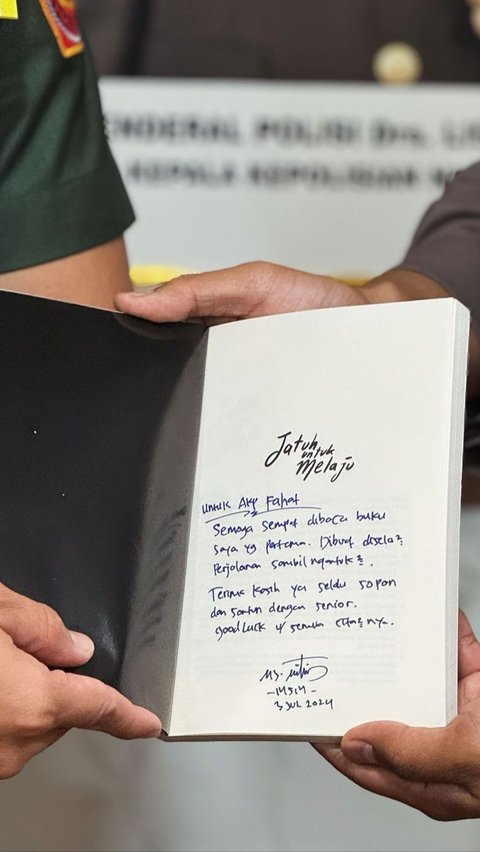 ENDERAL POLISI Drs. LIS
KEPALA KEPOLISIAN
Jatuh
untuk
Melaju
untuk AKP Fahat
Semoga sempat dibaca buku
saya yg pertama. Dibuat disela2
Perjalanan sambil ngantuk2.
Terima kasih ya selalu sopan
dan santun dengan senior.
Good Luck u/ semua cita2 nya.
3 JUL 2024